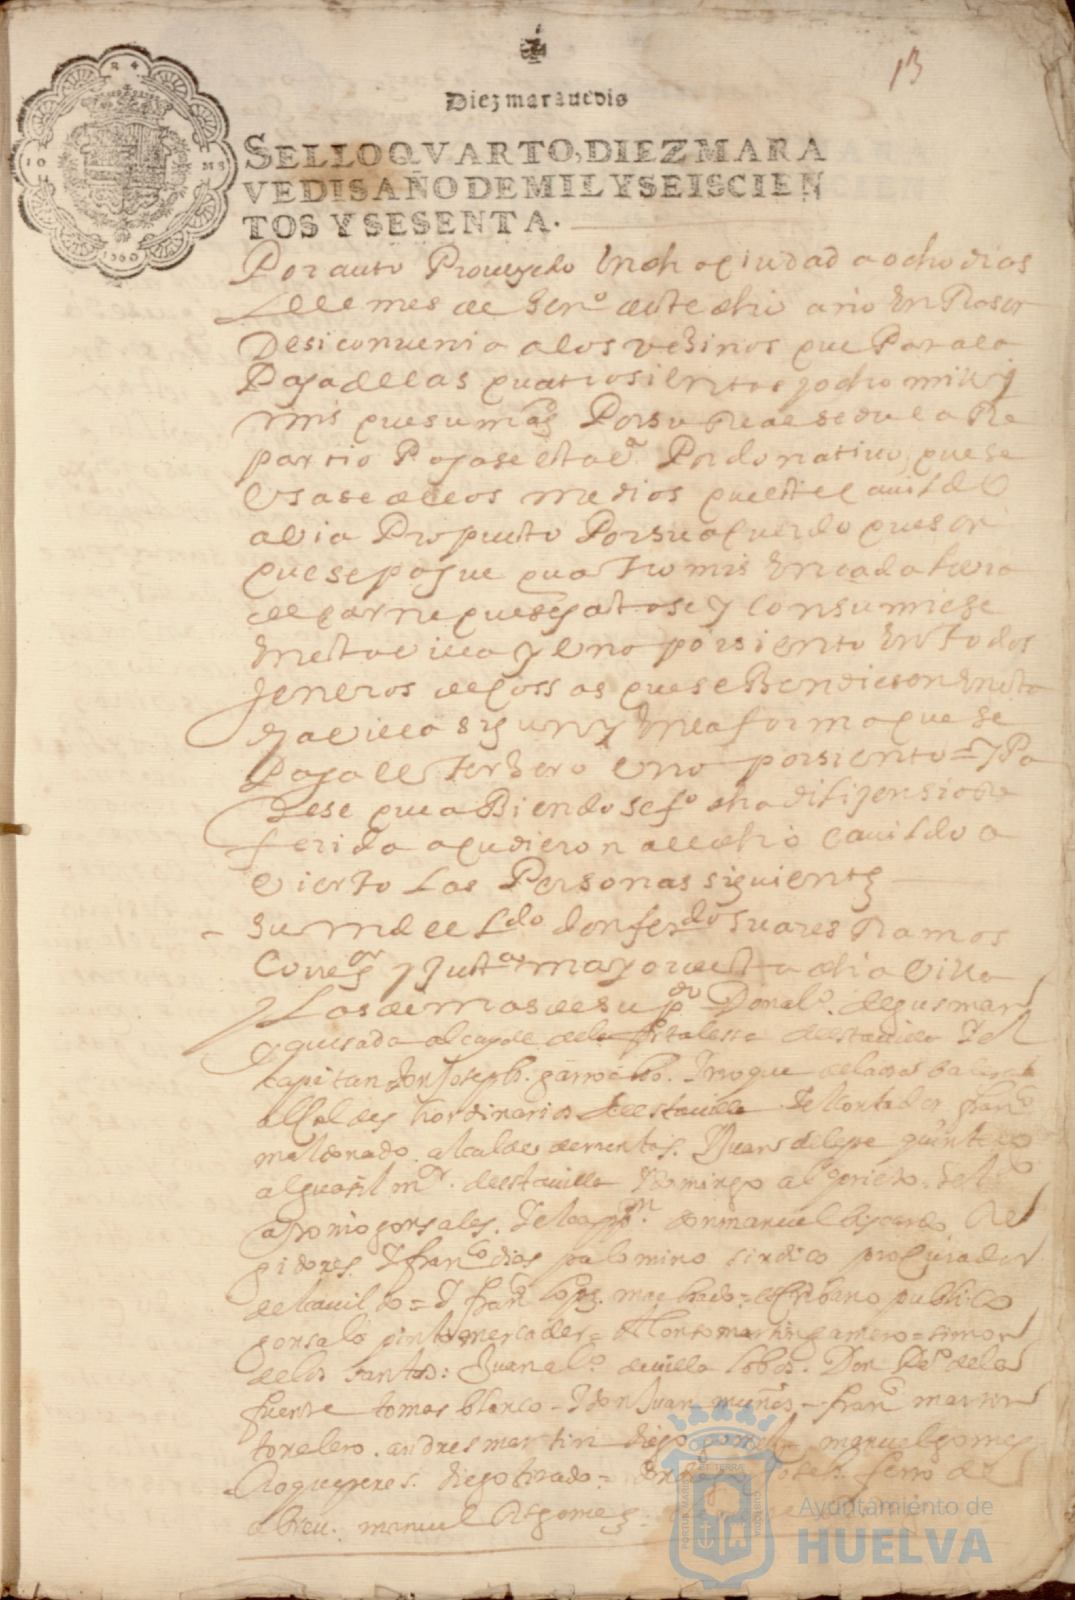 13
Diez marauedis
SELLO QVARTO, DIEZ MARA
VEDIS AÑO DE MIL Y SEISCIEN
TOS Y SESENTA.
Por auto Proueydo en dha ciudad a ocho dias
del mes de Hen.º deste dho año En
Desi conuenia a los vesinos que Para la
Paga de las quatrosientos y ocho mill
mrs que su mag Por su Real sedula Re
partio Paga se esta vª Por donatiuo que se
Usase de los medios que este cauildo
avia Propuesto Por su acuerdo que son
que se pague quatro mrs En cada libra
de carne que se gastase y consumiese
En esta villa y Uno por siento En todos
generos de cossas que se Bendiesen En esta
villa sigun y En la forma que se
Paga el terzero uno por siento = y Pa
rese que aBiendose fº dha diligensia Re
ferida acudieron al dho cauildo a
vierto Las Personas siguientes
su md el Ldo don ferdo suares Ramos
Correor y Justª mayor desta dha Villa
y Los demas de su Don alº de gusman
quesada alcayde de la fortalessa desta villa y el
capitan Don Joseph garrocho. y roque de la
alcaldes hordinarios desta villa y el contador franco
maldonado. alcalde de mestas. y Juan de lepe quintero
alguasil mor. desta villa y Domingo alº prieto. y el
antonio gonsales. y el capn. don manuel bejarano Re
gidores. y franco dias palomino sindico procurador
del cauildo = y franco lopes machado = escribano publico
gonsalo pinto mercader = Alonso martin gamero = simon
de los santos: Juan alº de villa lobos. Don de la
fuente tomas blanco = y don Juan muñis = franco martin
tonelero. andres martin diego manuel gomes
Roque peres. diego tirado = Joseph ferro de
abreu. manuel gomes
Ayuntamiento de
HUELVA